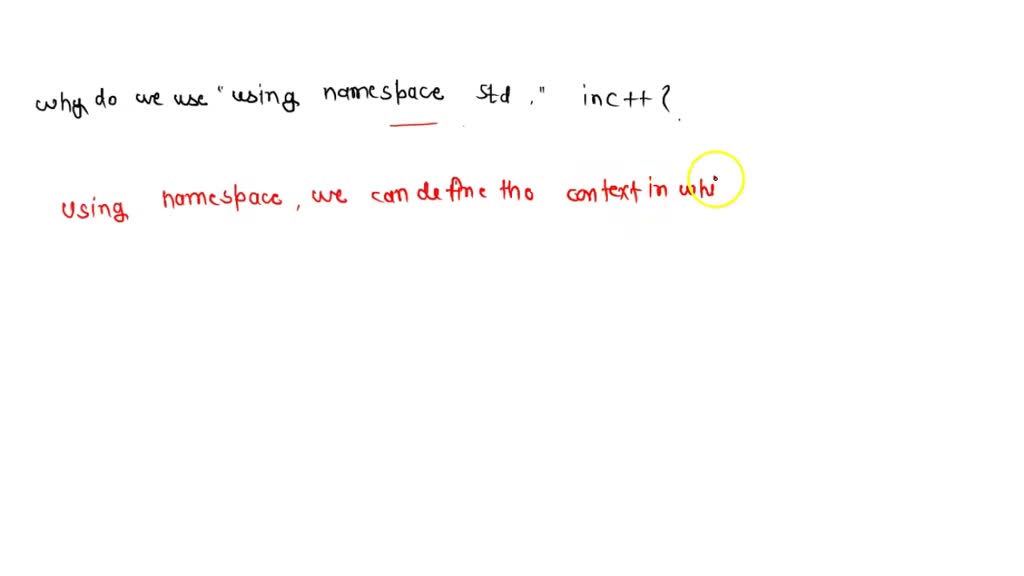 why do we use "using namespace std." inc++?
using namespace, we can define tho context in whi